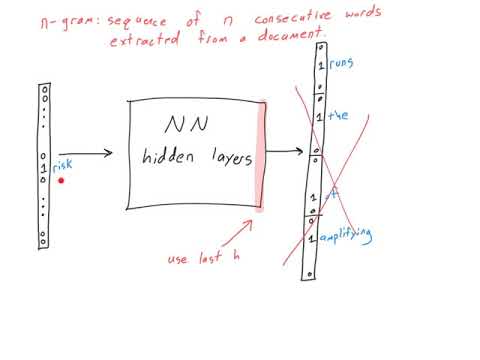 n-gram: sequence of n consecutive words
extracted from a document.
0
0
0
1 risk
0
0
0
NN
hidden layers
use last h
0
1 runs
0
0
1 the
0
0
1 of
0
0
1 amplifying
0